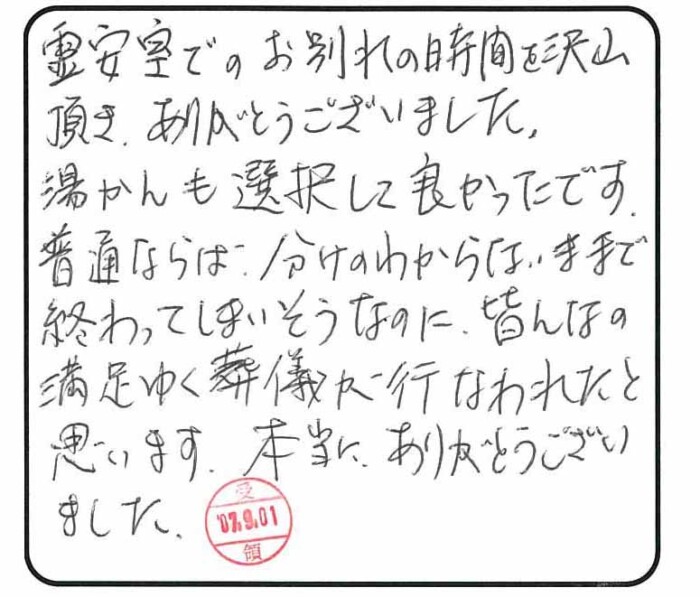 霊安室でのお別れの時間を沢山
頂き、ありがとうございました。
湯かんも選択して良かったです。
普通ならば、分けのわからないままで
終わってしまいそうなのに、皆んなの
満足ゆく葬儀が行なわれたと
思います。本当に、ありがとうござい
ました。
受
'07.9.01
領